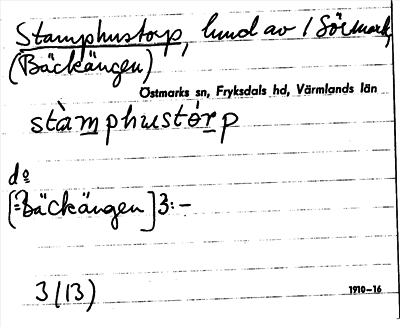 Stamphustorp, lund av / Sörmark,
(Bäckängen)
Östmarks sn, Fryksdals hd, Värmlands län
stàmphustórp
do
[=Bäckängen] 3:-
3 (13)
1910-16